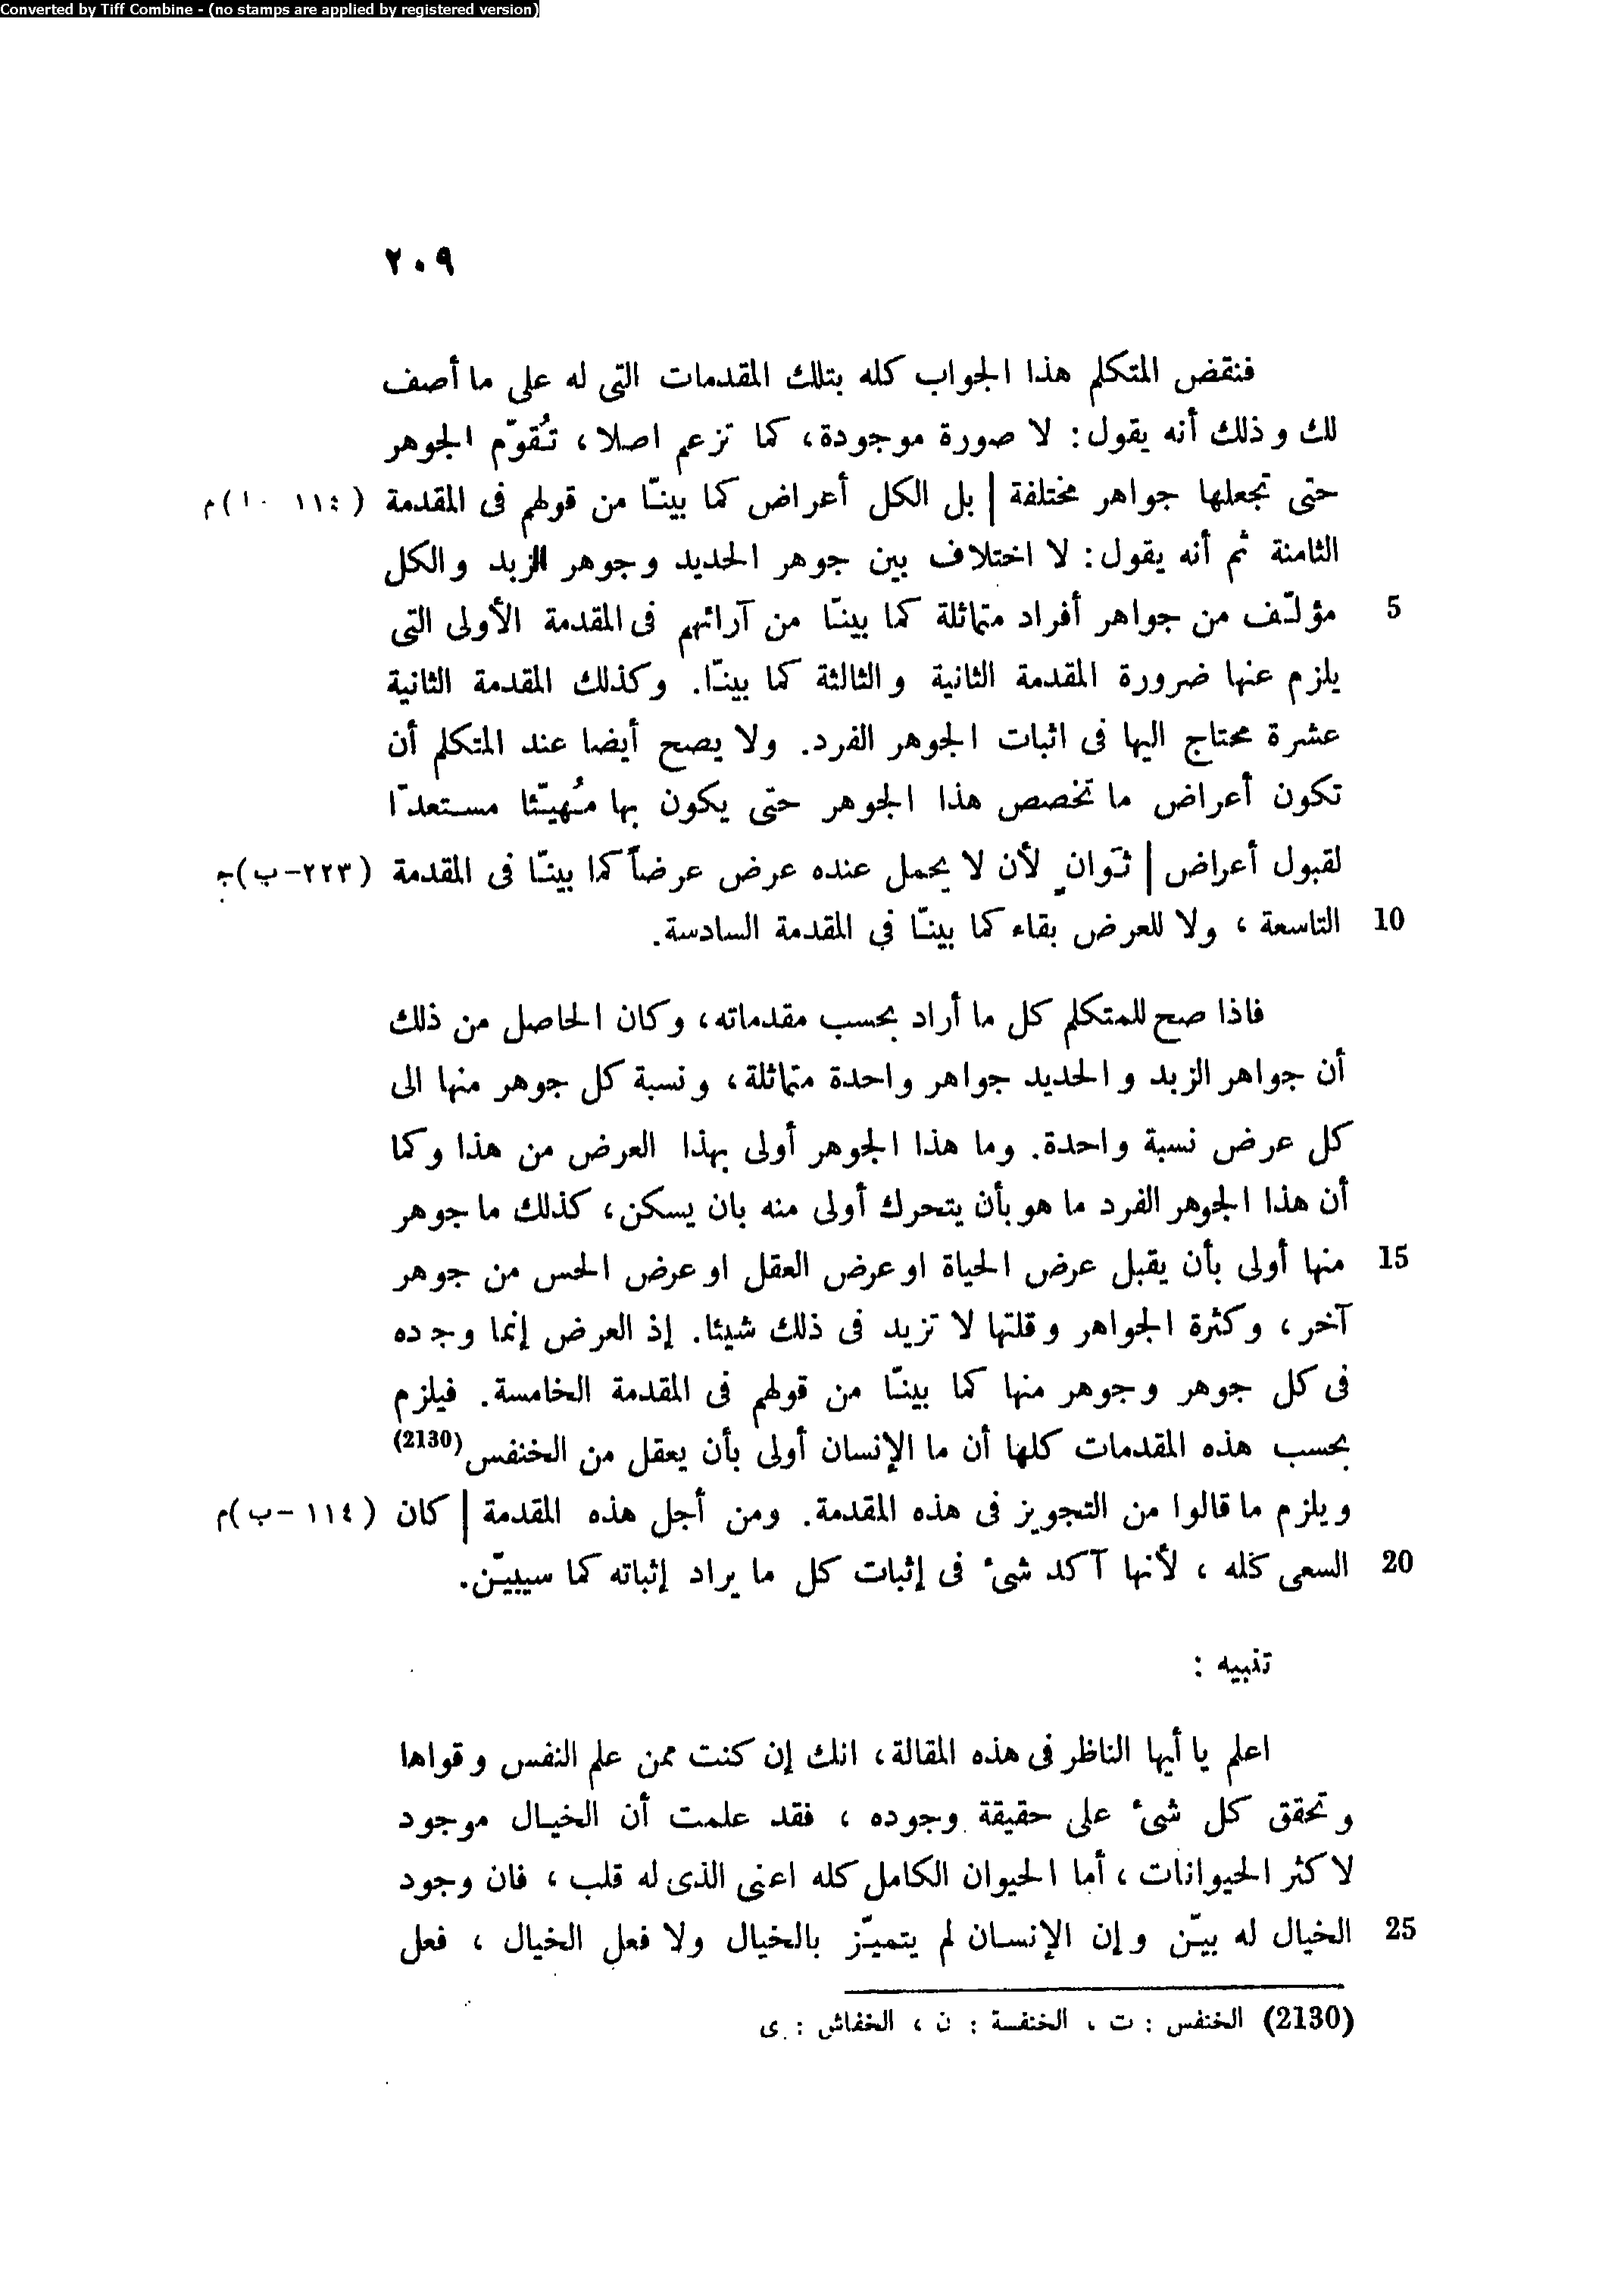 Converted by Tiff Combine - (no stamps are applied by registered version)
٢٠٩
فنقض المتكلم هذا الجواب كله بتلك المقدمات التى له على ما أصف
لك وذلك أنه يقول: لا صورة موجودة، كما تزعم اصلا، تُقوّم الجوهر
حتى تجعلها جواهر مختلفة | بل الكل أعراض كما بينّا من قولهم فى المقدمة م(
الثامنة ثم أنه يقول: لا اختلاف بين جوهر الحديد وجوهر الزبد والكل
5 مؤلّف من جواهر أفراد متماثلة كما بينّا من آرائهم فى المقدمة الأولى التى
يلزم عنها ضرورة المقدمة الثانية والثالثة كما بينّا. وكذلك المقدمة الثانية
عشرة محتاج اليها فى اثبات الجوهر الفرد. ولا يصح أيضا عند المتكلم أن
تكون أعراض ما تخصص هذا الجوهر حتى يكون بها مُهيّئا مستعدّا
لقبول أعراض | ثَوانٍ لأن لا يحمل عنده عرض عرضاً كما بينّا فى المقدمة (٢٢٣-ب)ج
10 التاسعة، ولا للعرض بقاء كما بينّا في المقدمة السادسة.
فاذا صح للمتكلم كل ما أراد بحسب مقدماته، وكان الحاصل من ذلك
أن جواهر الزبد والحديد جواهر واحدة متماثلة، ونسبة كل جوهر منها الى
كل عرض نسبة واحدة. وما هذا الجوهر أولى بهذا العرض من هذا وكما
أن هذا الجوهر الفرد ما هو بأن يتحرك أولى منه بان يسكن، كذلك ما جوهر
15 منها أولى بأن يقبل عرض الحياة او عرض العقل او عرض الحس من جوهر
آخر، وكثرة الجواهر وقلتها لا تزيد فى ذلك شيئا. إذ العرض إنما وجده
فى كل جوهر وجوهر منها كما بينّا من قولهم فى المقدمة الخامسة. فيلزم
بحسب هذه المقدمات كلها أن ما الإنسان أولى بأن يعقل من الخنفس (2130)
ويلزم ما قالوا من التجويز فى هذه المقدمة. ومن أجل هذه المقدمة | كان (١١٤-ب)م
20 السعى كله، لأنها آكد شئ فى إثبات كل ما يراد إثباته كما سيبيّن.
تنبيه :
اعلم يا أيها الناظر فى هذه المقالة، انك إن كنت ممن علم النفس وقواها
وتحقق كل شئ على حقيقة وجوده، فقد علمت أن الخيال موجود
لاكثر الحيوانات، أما الحيوان الكامل كله اعنى الذى له قلب، فان وجود
25 الخيال له بيّن وإن الإنسان لم يتميّز بالخيال ولا فعل الخيال، فعل
(2130) الخنفس : ت ، الخنفسة : ن ، الخفاش : ى